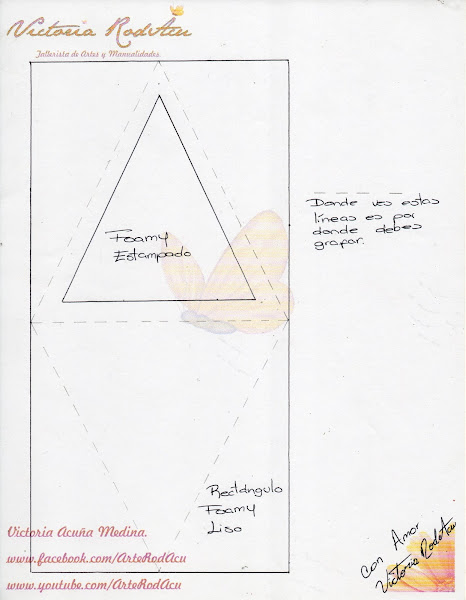 Victoria RodAcu
Tallerista de Artes y Manualidades.
Donde ves estas
líneas es por
donde debes
grapar.
Foamy
Estampado
Rectángulo
Foamy
Liso
Victoria Acuña Medina.
www.facebook.com/ArteRodAcu
www.youtube.com/ArteRodAcu
Con Amor
Victoria RodAcu